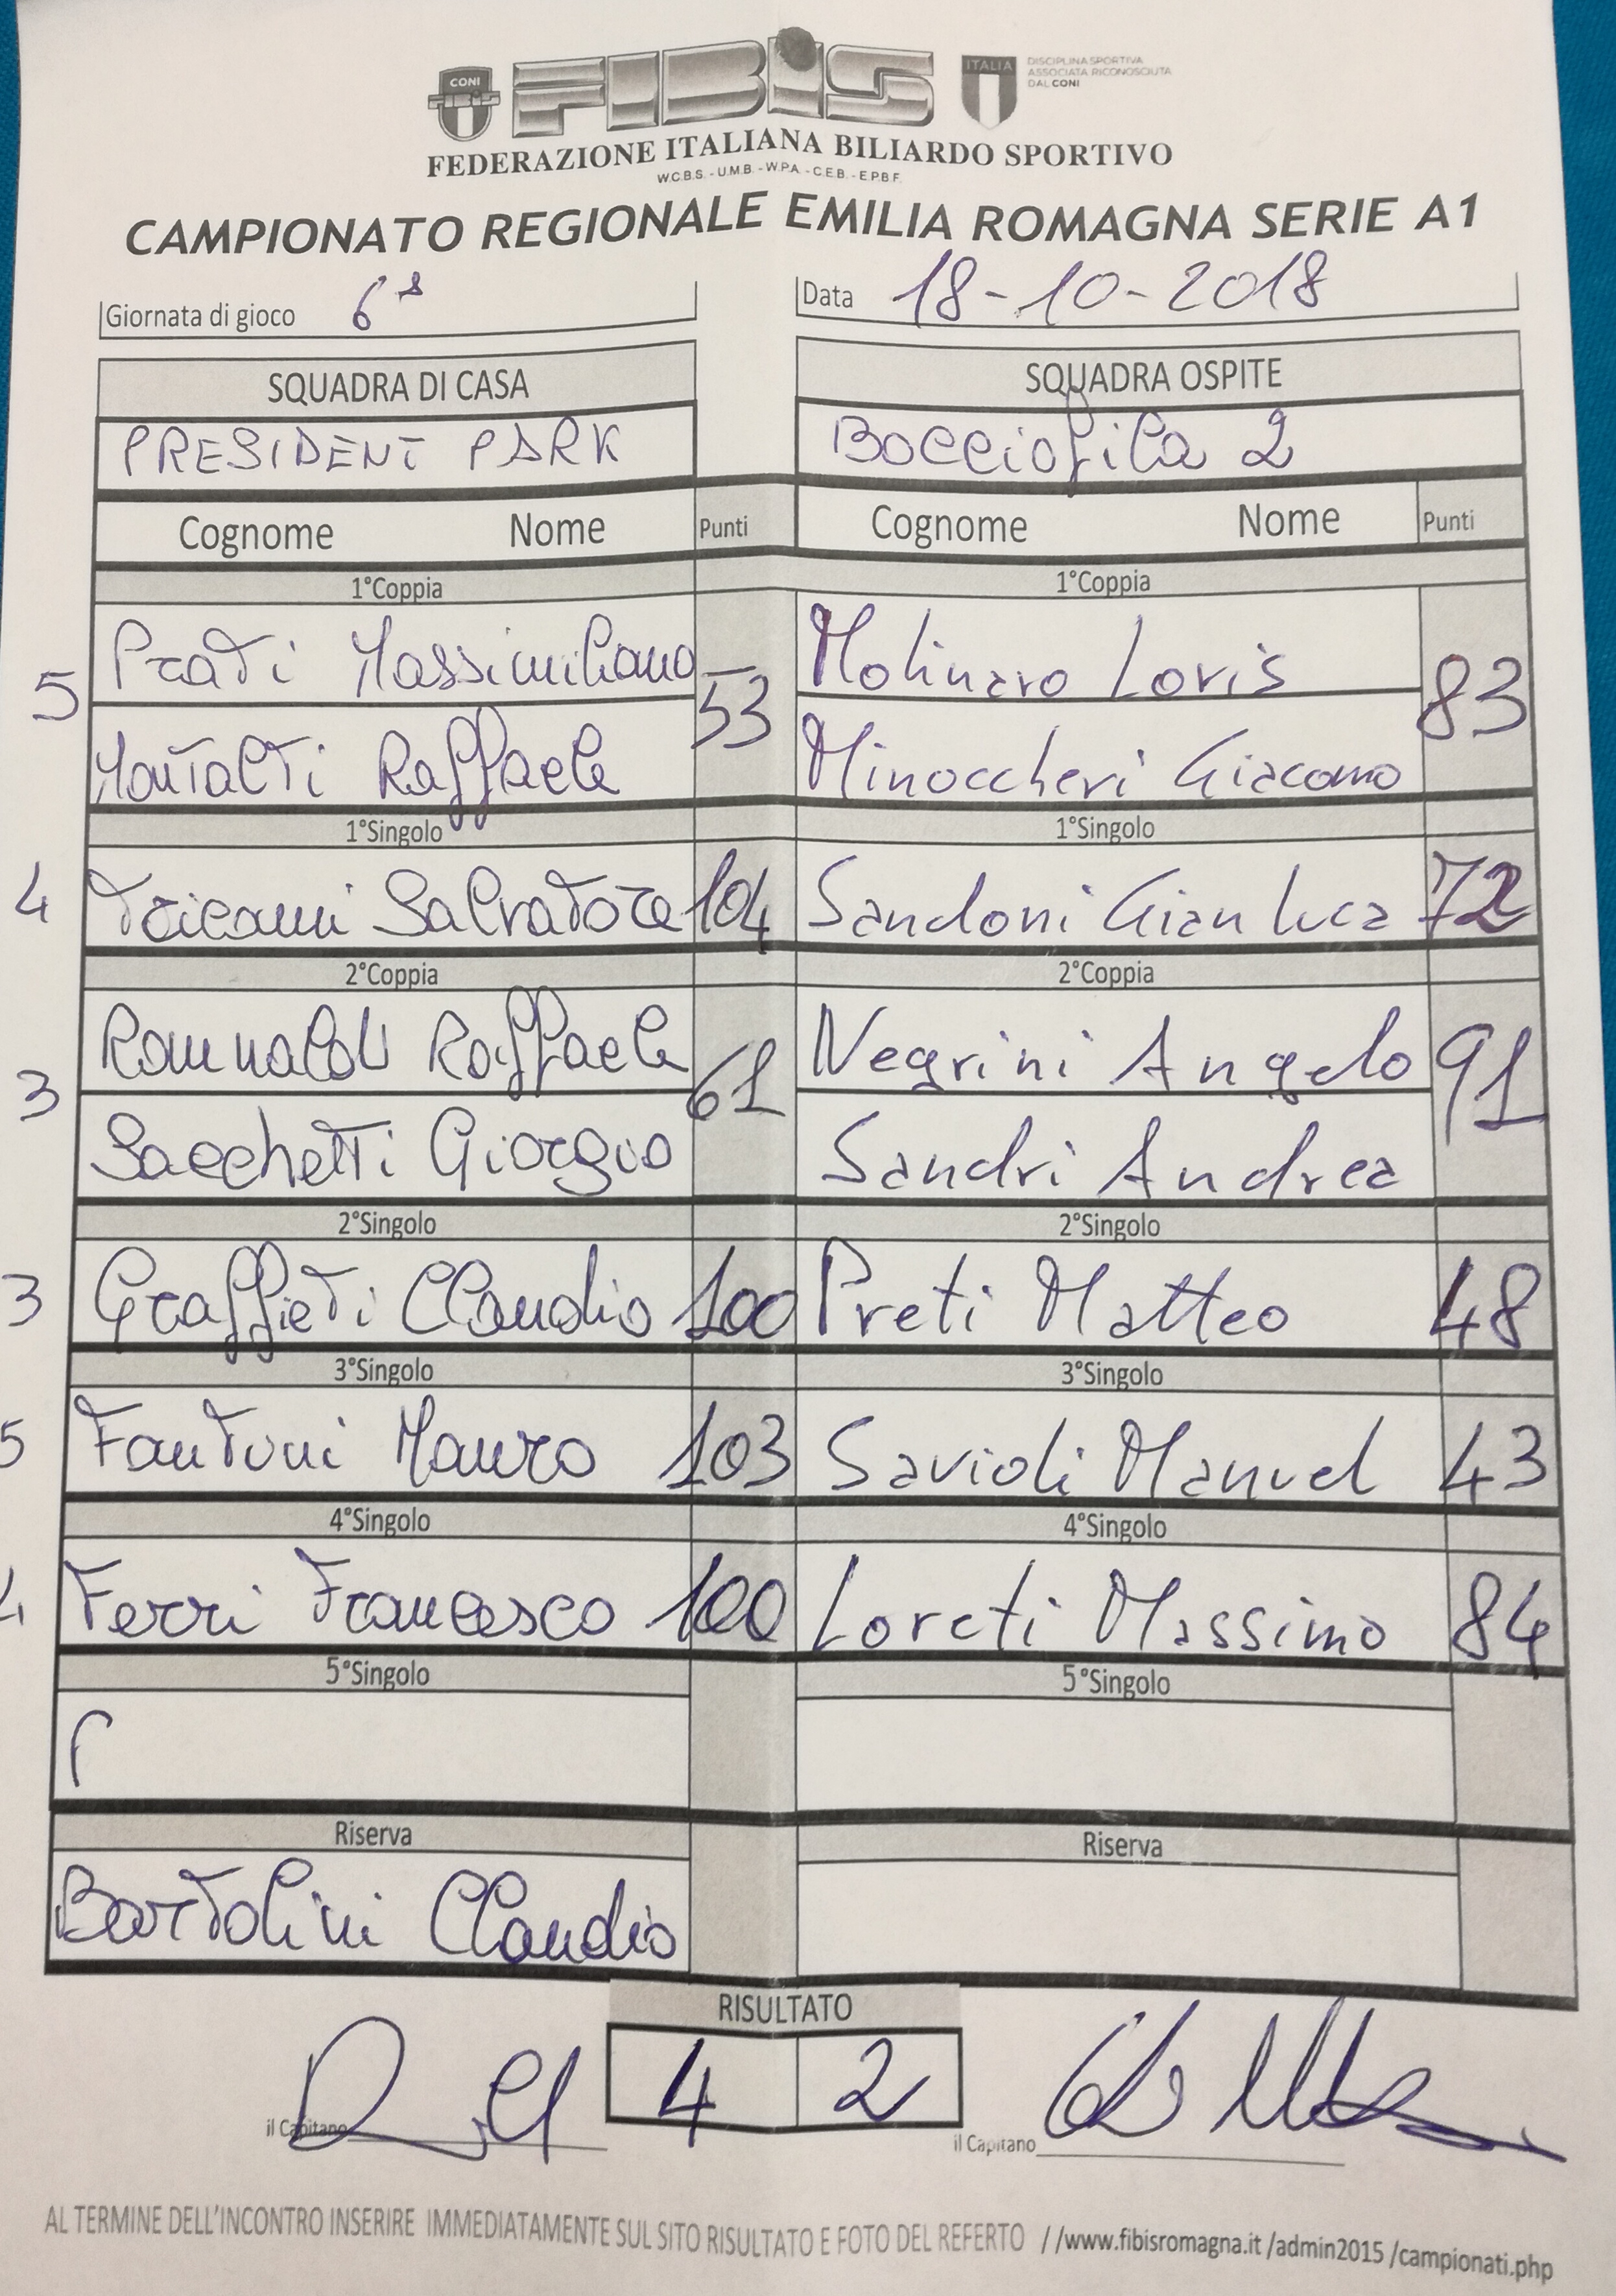 CONI
FIBiS
ITALIA
DISCIPLINA SPORTIVA
ASSOCIATA RICONOSCIUTA
DAL CONI
FEDERAZIONE ITALIANA BILIARDO SPORTIVO
W.C.B.S. - U.M.B. - W.P.A. - C.E.B. - E.P.B.F.
CAMPIONATO REGIONALE EMILIA ROMAGNA SERIE A1
Giornata di gioco 6ª Data 18-10-2018
SQUADRA DI CASA SQUADRA OSPITE
PRESIDENT PARK Bocciofila 2
Cognome Nome Punti Cognome Nome Punti
1°Coppia 1°Coppia
Prati Massimiliano Molinaro Loris
5 53 83
Montalti Raffaele Minoccheri Giacomo
1°Singolo 1°Singolo
4 Troiani Salvatore 104 Sandoni Gian Luca 72
2°Coppia 2°Coppia
Romualdi Raffaele Negrini Angelo
3 61 91
Sacchetti Giorgio Sandri Andrea
2°Singolo 2°Singolo
3 Graffieti Claudio 100 Preti Matteo 48
3°Singolo 3°Singolo
5 Fantini Mauro 103 Savioli Manuel 43
4°Singolo 4°Singolo
4 Ferri Francesco 100 Loreti Massimo 84
5°Singolo 5°Singolo
Riserva Riserva
Bartolini Claudio
RISULTATO
4 2
il Capitano il Capitano
AL TERMINE DELL'INCONTRO INSERIRE IMMEDIATAMENTE SUL SITO RISULTATO E FOTO DEL REFERTO //www.fibisromagna.it /admin2015 /campionati.php